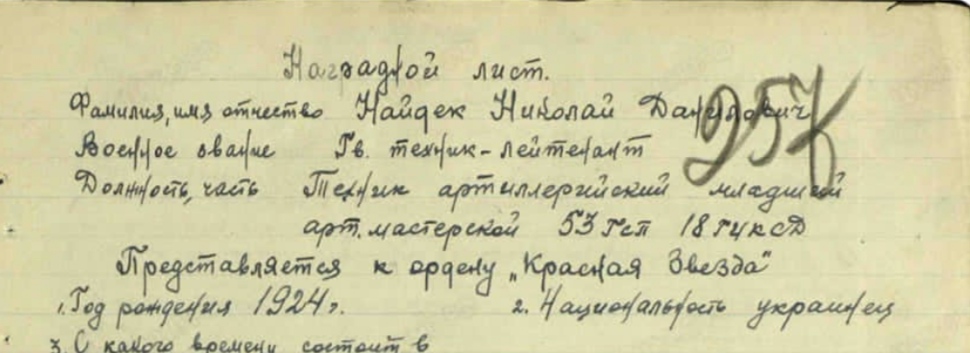 Наградной лист.
Фамилия, имя отчество Найдек Николай Данилович
257
Военное звание Гв. техник-лейтенант
Должность, часть Техник артиллерийский младший
арт. мастерской 53 гсп 18 гцксД
Представляется к ордену „Красная Звезда"
1. Год рождения 1924 г. 2. Национальность украинец
3. С какого времени состоит в